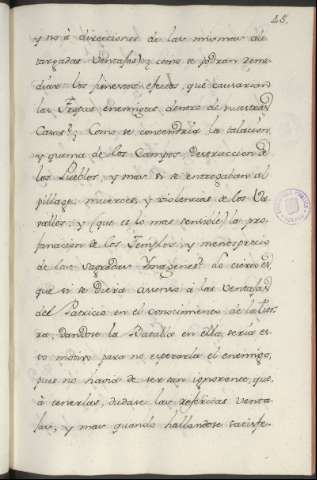 45.
y no à direcciones de las mismas de
cantadas Ventajas? y como se podrán reme
diar los funestos efectos, que causarian
las Tropas enemigas, dentro de nuestras
Casas? y Como se concederá la talacion
y quema de los Campos, destruccion de
los Pueblos, y mas si se entregaban al
pillage, muertes, y violencias de los Va
sallos; y (que es lo mas sensible) la pro
fanacion de los Templos, y menosprecio
de las Sagradas Imagenes? Lo cierto es,
que si se diera assenso à las Ventajas
del Patricio en el conocimiento de la tier
ra, dandose la Batalla en ella, seria es
to motivo para no esperarla el enemigo,
pues no havia de ser tan ignorante, que,
à tenerlas, dudase las referidas Venta
jas, y mas quando hallandose satisfe-